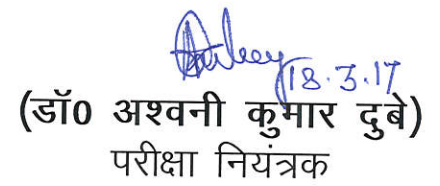 Dubey 18.3.17
(डॉ0 अश्वनी कुमार दुबे)
परीक्षा नियंत्रक